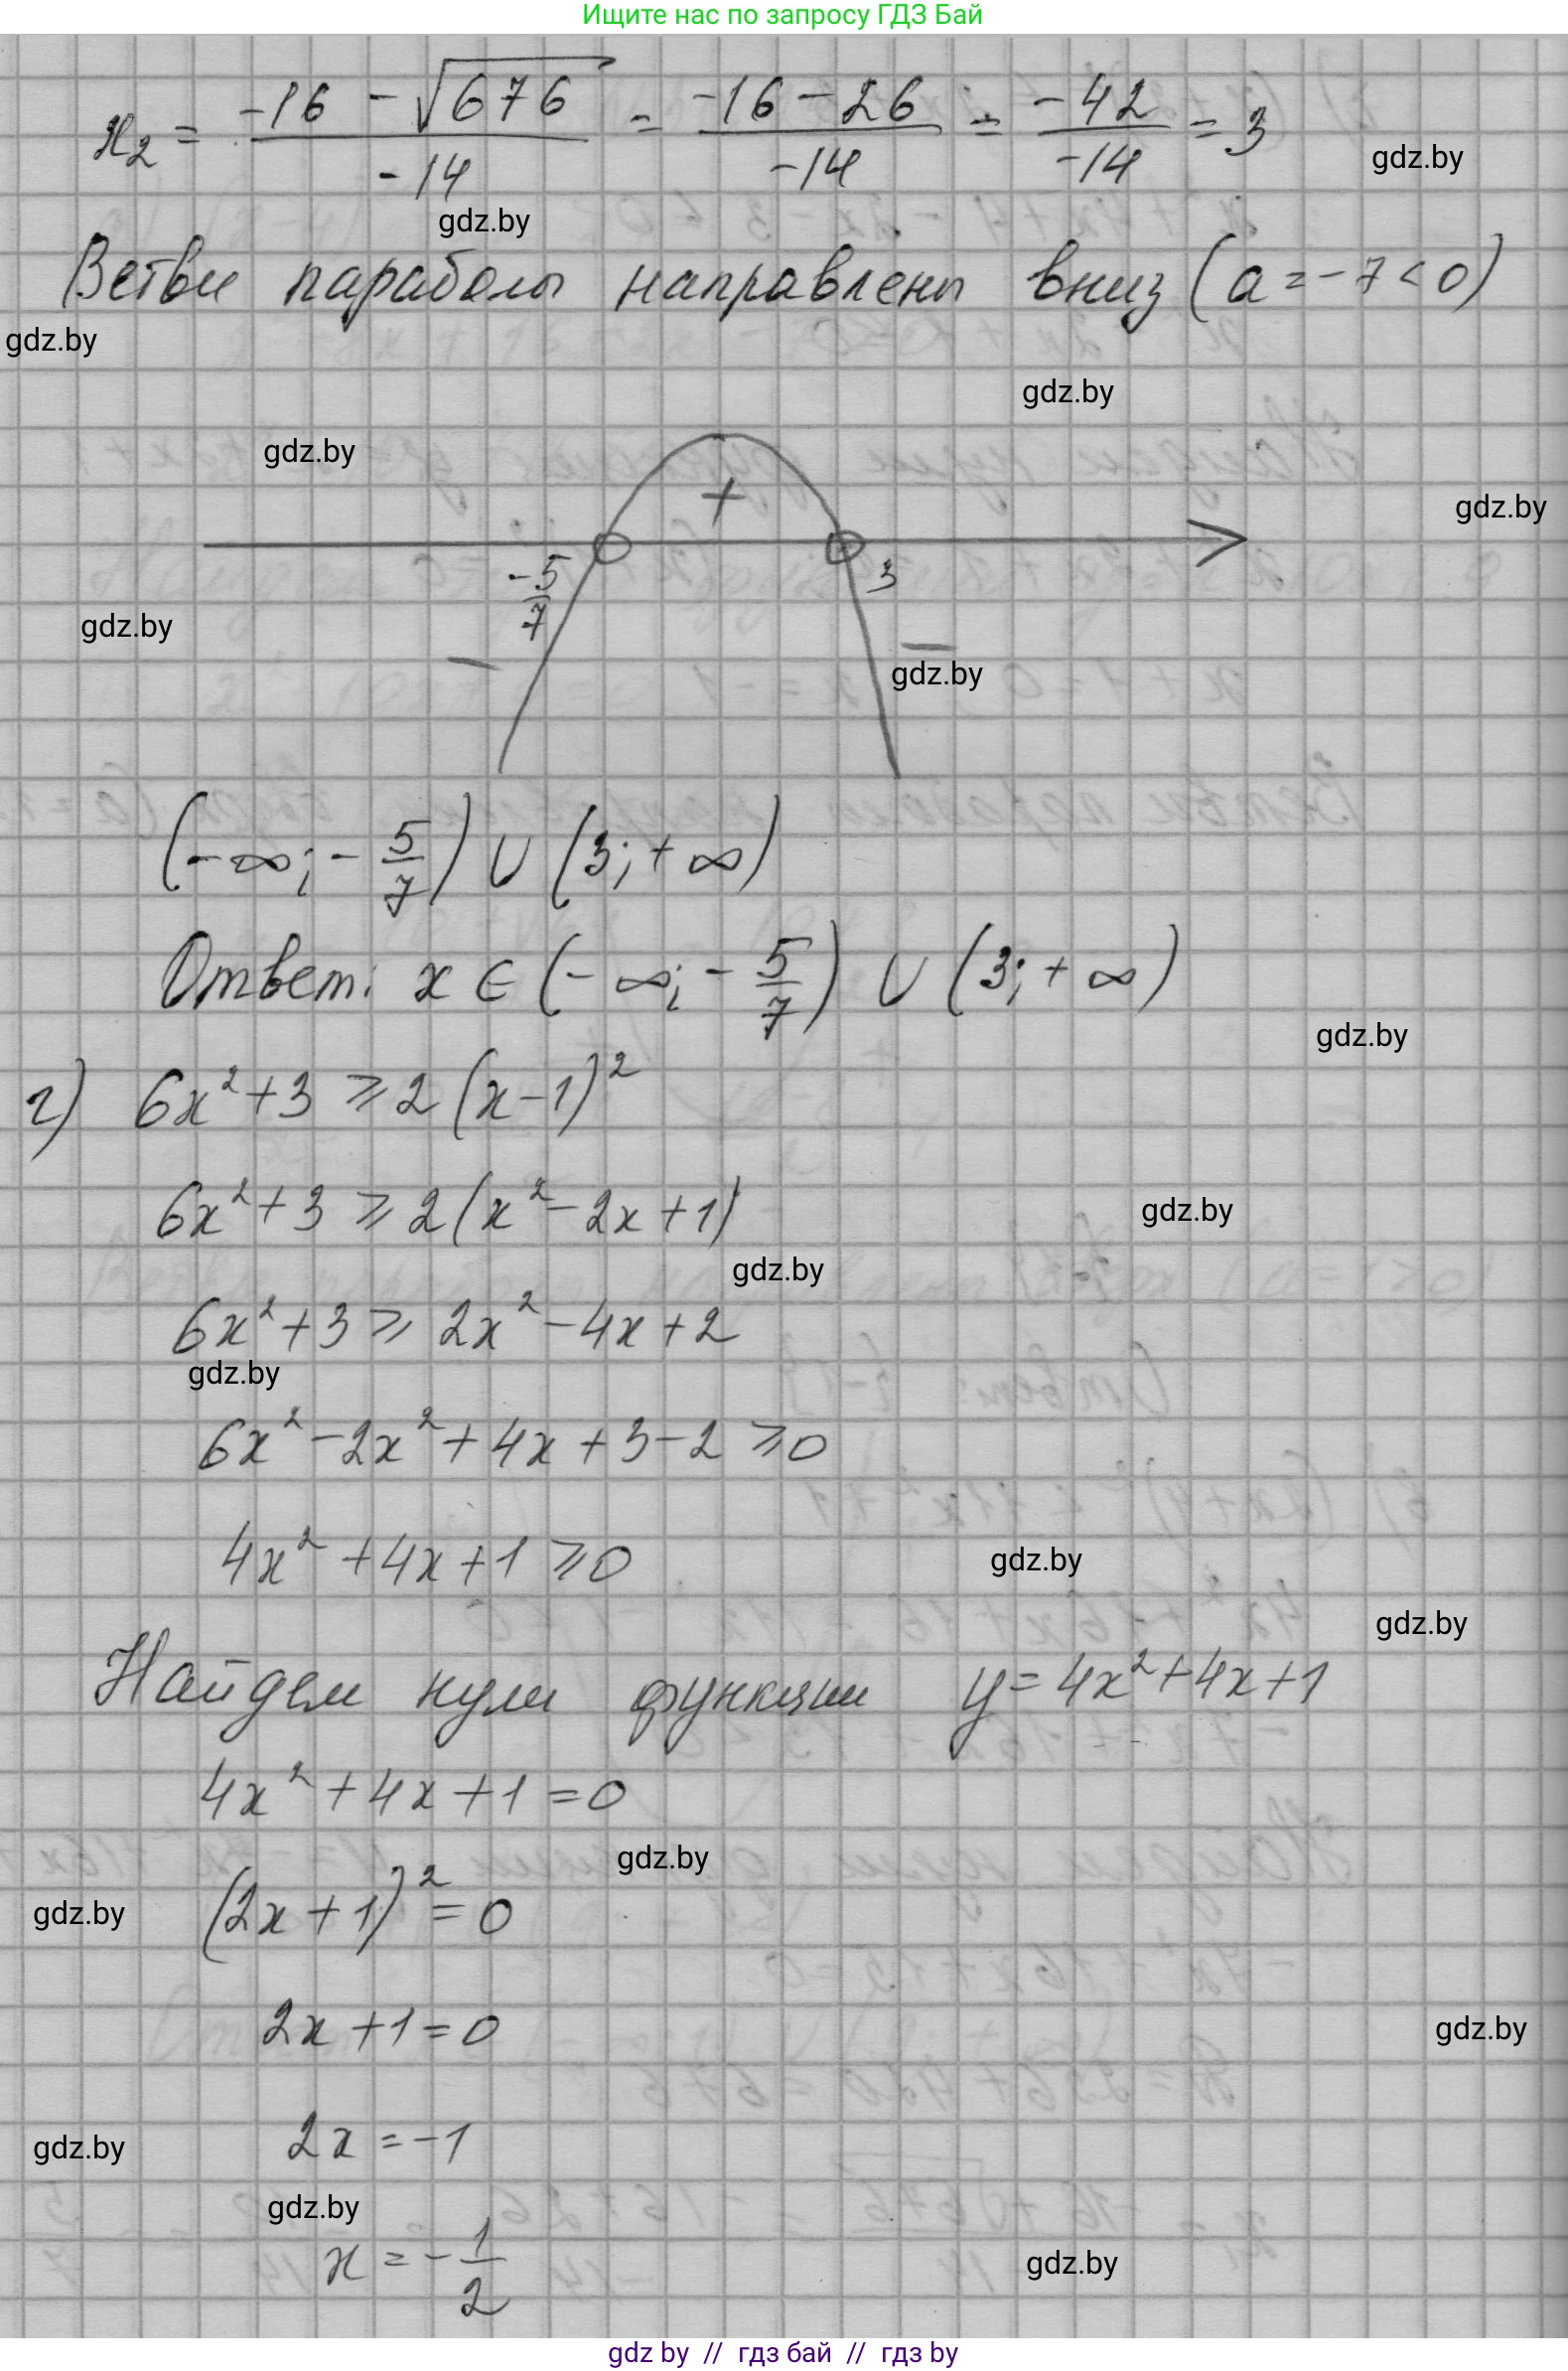 Ищите нас по запросу ГДЗ Бай
x₂ = (-16 - √676)/(-14) = (-16 - 26)/(-14) = (-42)/(-14) = 3
gdz.by
gdz.by
Ветви параболы направлены вниз (a = -7 < 0)
gdz.by
gdz.by
gdz.by
+
gdz.by
-5/7
3
gdz.by
−
−
gdz.by
(-∞; -5/7) ∪ (3; +∞)
Ответ: x ∈ (-∞; -5/7) ∪ (3; +∞)
gdz.by
г) 6x² + 3 ⩾ 2(x-1)²
6x² + 3 ⩾ 2(x² - 2x + 1)
gdz.by
gdz.by
6x² + 3 ⩾ 2x² - 4x + 2
gdz.by
6x² - 2x² + 4x + 3 - 2 ⩾ 0
4x² + 4x + 1 ⩾ 0
gdz.by
gdz.by
Найдем нули функции y = 4x² + 4x + 1
4x² + 4x + 1 = 0
gdz.by
gdz.by
(2x + 1)² = 0
2x + 1 = 0
gdz.by
2x = -1
gdz.by
gdz.by
x = -1/2
gdz.by
gdz by // гдз бай // гдз by